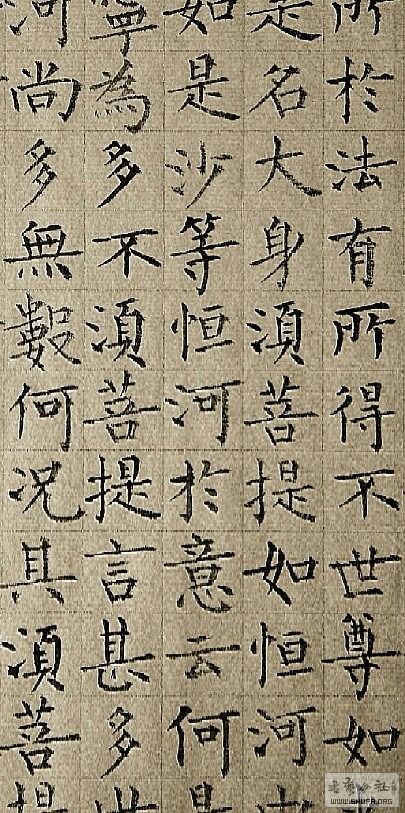 所於法有所得不世尊如
是名大身須菩提如恒河
如是沙等恒河於意云何是
寧為多不須菩提言甚多世
河尚多無數何況其須菩提
WWW.SHUFA.ORG